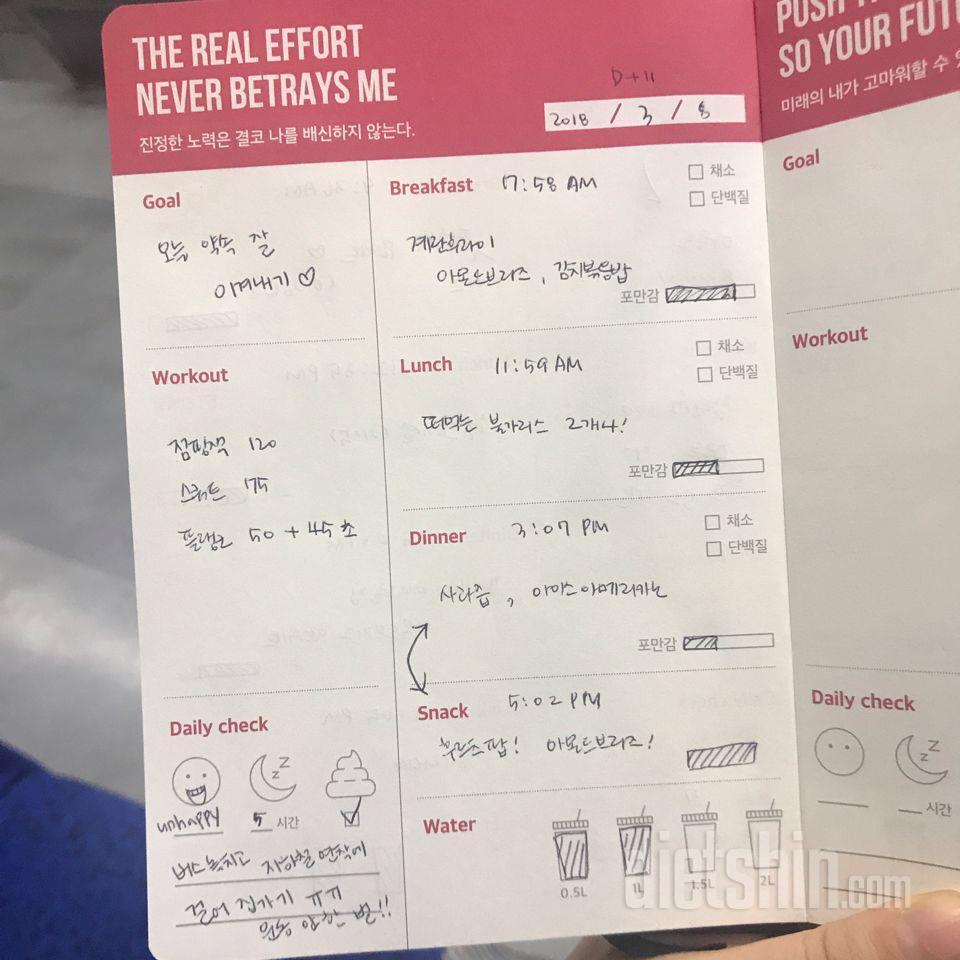 THE REAL EFFORT
NEVER BETRAYS ME
진정한 노력은 결코 나를 배신하지 않는다.
D+11
2018 / 3 / 8
Goal
오늘 약속 잘
이겨내기♡
Workout
점핑잭 120
스쿼트 175
플랭크 50 + 45초
Daily check
unhappy
5 시간
버스 놓치고 지하철 연착에
걸어 집가기 ㅠㅠ
운동 안한 벌!!
Breakfast 7:58 AM
채소
단백질
계란후라이
아몬드브리즈, 김치볶음밥
포만감
Lunch 11:59 AM
채소
단백질
떠먹는 불가리스 2개나!
포만감
Dinner 3:07 PM
채소
단백질
사과즙, 아이스아메리카노
포만감
Snack 5:02 PM
후르츠팝! 아몬드브리즈!
Water
0.5L
1L
1.5L
2L
PUSH
SO YOUR FUTU
미래의 내가 고마워할 수
Goal
Workout
Daily check
시간
dietshin.com